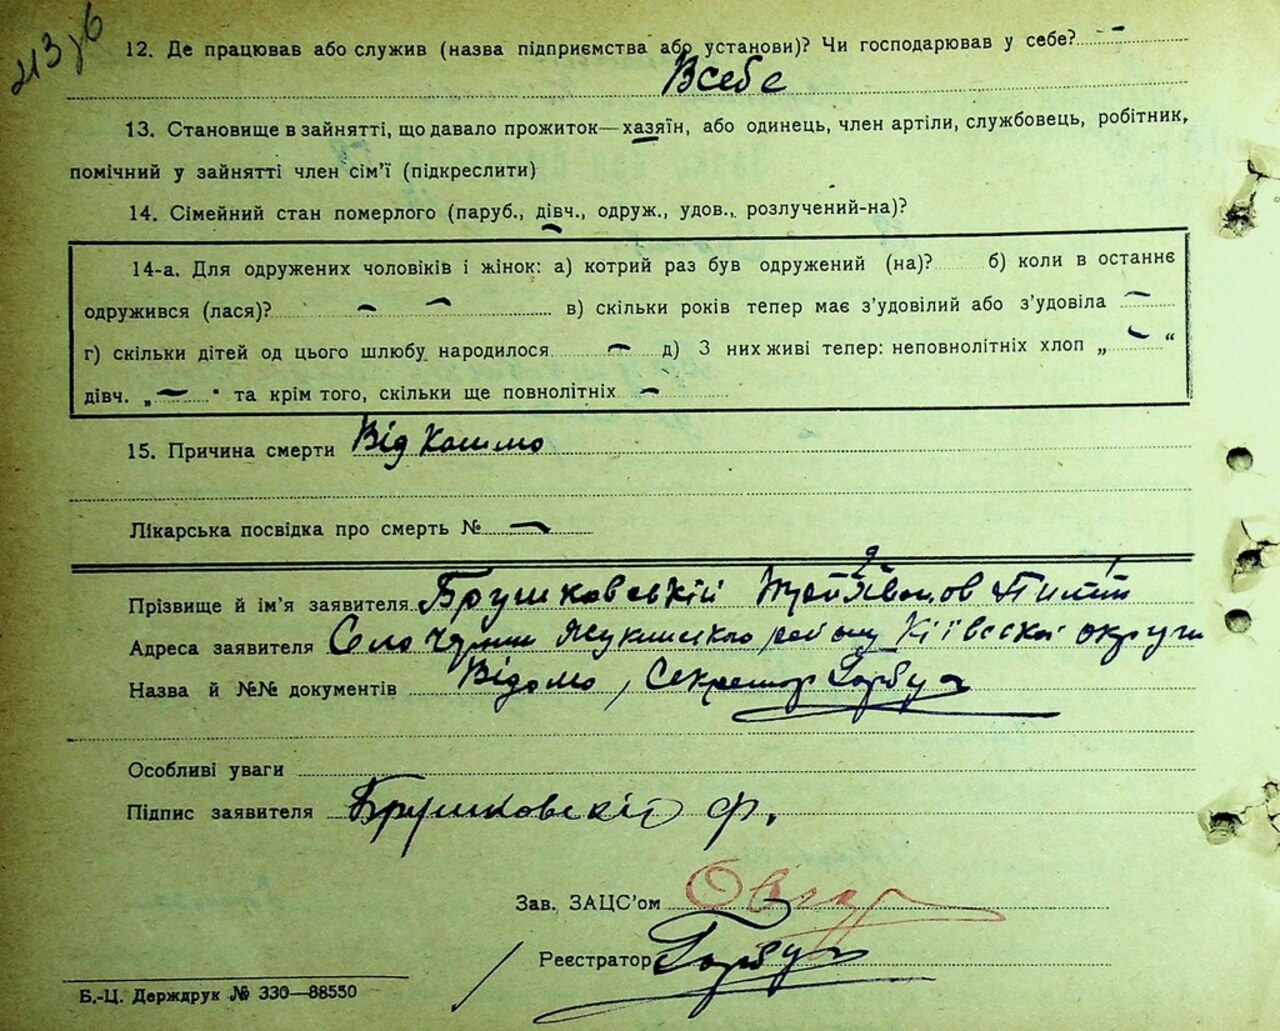 213 зб
12. Де працював або служив (назва підприємства або установи)? Чи господарював у себе? –
В себе
13. Становище в зайнятті, що давало прожиток—хазяїн, або одинець, член артіли, службовець, робітник,
помічний у зайнятті член сім’ї (підкреслити)
14. Сімейний стан померлого (паруб., дівч., одруж., удов., розлучений-на)?
14-а. Для одружених чоловіків і жінок: а) котрий раз був одружений (на)? б) коли в останнє
одружився (лася)? – – в) скільки років тепер має з’удовілий або з’удовіла –
г) скільки дітей од цього шлюбу народилося – д) З них живі тепер: неповнолітніх хлоп „ – “
дівч. „ – “ та крім того, скільки ще повнолітніх –
15. Причина смерти Від Кашлю
Лікарська посвідка про смерть № –
Прізвище й ім’я заявителя Брушковський
Адреса заявителя Село району Київської округи
Назва й №№ документів Відомо, Секретар Горбун
Особливі уваги
Підпис заявителя Брушковскій Ф.
Зав. ЗАЦС’ом
Реєстратор Горбун
Б.-Ц. Держдрук № 330—88550